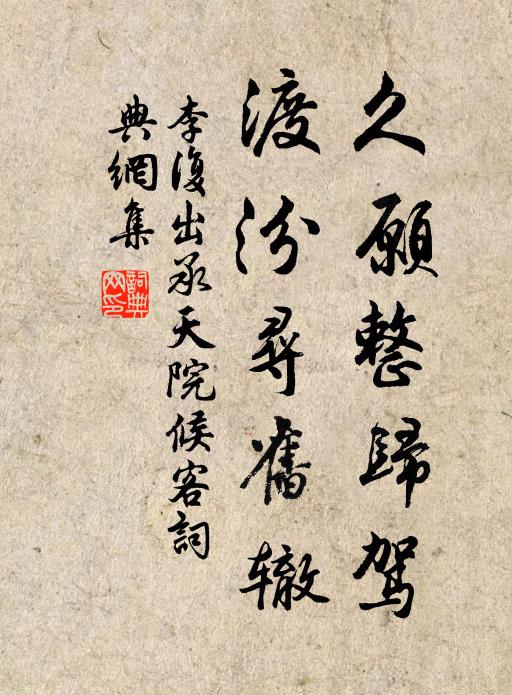 久願整歸驾
渡汾尋舊辙
李復出承天院候客詞
典網集
詞典网印